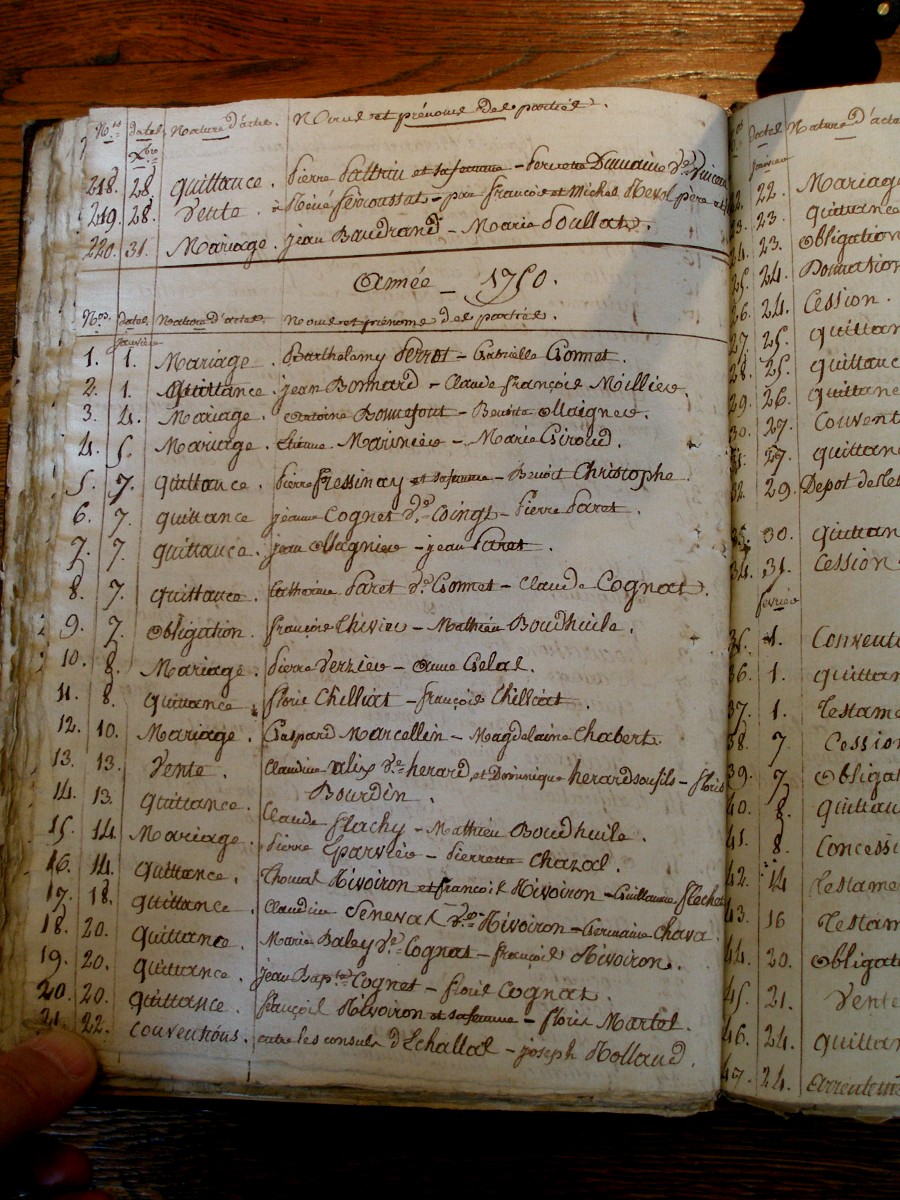 Nos. dates Nature d'actes. Noms et prénoms des parties.
Xbre
218. 28. quittance. Pierre et sa femme - Damain Ve.
219. 28. Vente. René - par françois et Michel Revol père et
220. 31. Mariage. jean Baudrand - Marie Poullat.
Année - 1750.
Nos. dates Nature d'actes. Noms et prénoms des parties.
janvier
1. 1. Mariage. Barthelemy Perrot - Gabrielle Gonnet.
2. 1. Quittance. jean Bonnard - Claude françois Millieu.
3. 4. Mariage. Antoine Bonnefont - Benoite Magniew.
4. 5. Mariage. Etienne - Marie Giroud.
5. 7. quittance. Pierre fressinay et sa femme - Benoit Christophe.
6. 7. quittance jeanne Cognet Ve. Coingt - Pierre Paret.
7. 7. quittance. jean Magnieu - jean Paret.
8. 7. quittance. Catherine Paret Ve. Gonnet - Claude Cognat.
9. 7. Obligation. françois - Mathieu Boudhuile.
10. 8. Mariage. Pierre Verzieu - Anne Gelas.
11. 8. quittance. floris Chilliat - françois Chilliat.
12. 10. Mariage. Gaspard Marcellin - Magdelaine Chabert.
13. 13. Vente. Claudine alix Ve. herard et Dominique herard son fils - floris
Bourdin.
14. 13. quittance. Claude flachy - Mathieu Boudhuile.
15. 14. Mariage. Pierre - Pierrette Chazal.
16. 14. quittance. Thomas Rivoiron et françois Rivoiron - Guillaume flechet
17. 18. quittance. Claudine Ve. Rivoiron - Germaine Chava.
18. 20. quittance. Marie Baley Ve. Cognat - françois Rivoiron.
19. 20. quittance. jean Bapte. Cognet - floris Cognat.
20. 20. quittance. françois Rivoiron et sa femme - floris Martel.
21. 22. Conventions. entre les consuls d'Echallas - joseph Rolland.
dates Nature d'acte
janvier
22. 22. Mariage
23. 23. quittance
24. 23. Obligation
25. 24. Donation
26. 24. Cession.
27. 25. quittan
28. 25. quittance
29. 26. quittanc
30. 27. Convent
31. 27. quittanc
32. 29. Depot de
33. 30. quittan
34. 31. Cession
fevrier
35. 1. Conventi
36. 1. quittan
37. 1. Testame
38. 7 Cession
39. 7 Obligat
40. 8. quittan
41. 8. Concessi
42. 14 Testame
43. 16 Testam
44. 20. Obligat
45. 21. Vente
46. 24. quittan
47. 24. Arrentem